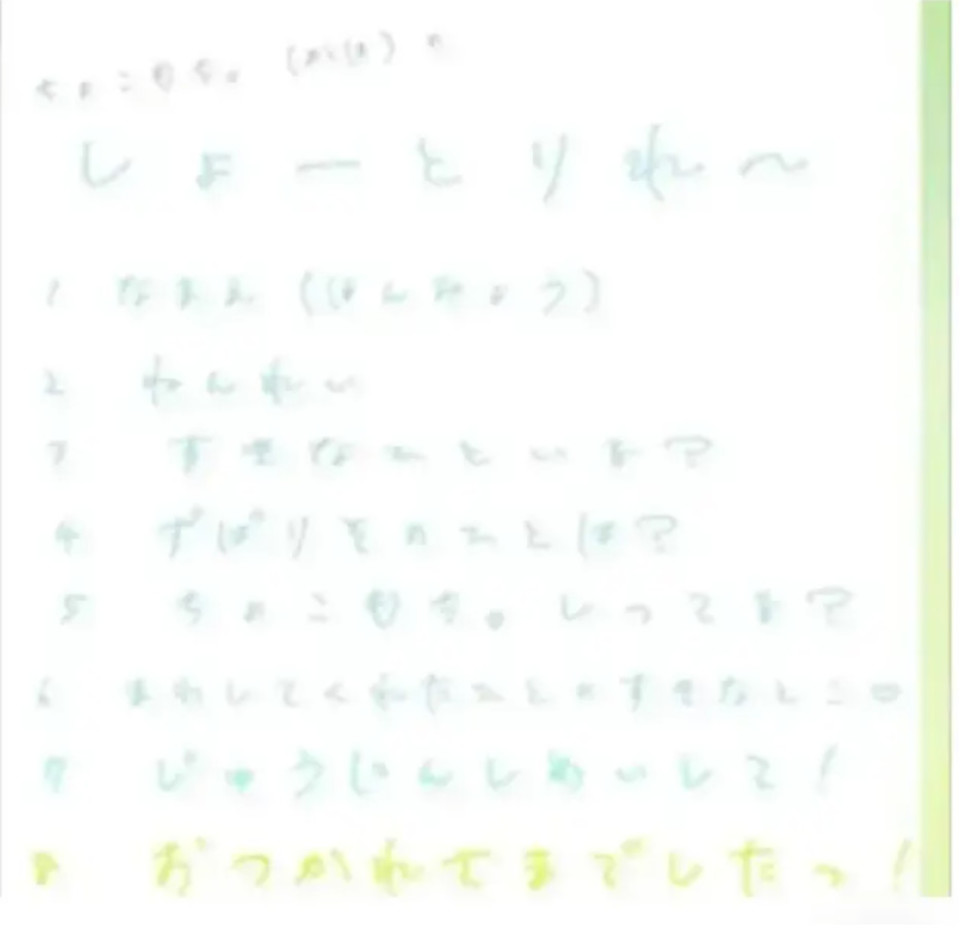 ちょこもち。 の
しょーとりれ〜
1 なまえ (ほんみょう)
2 ねんれい
3 すきなこといよ?
4 ずばりそのことは?
5 ちょこもち。しってま?
6 まわしてくれたことのすきなとこ♡
7 じゅうにんしめいして!
8 おつかれてまでしたっ!